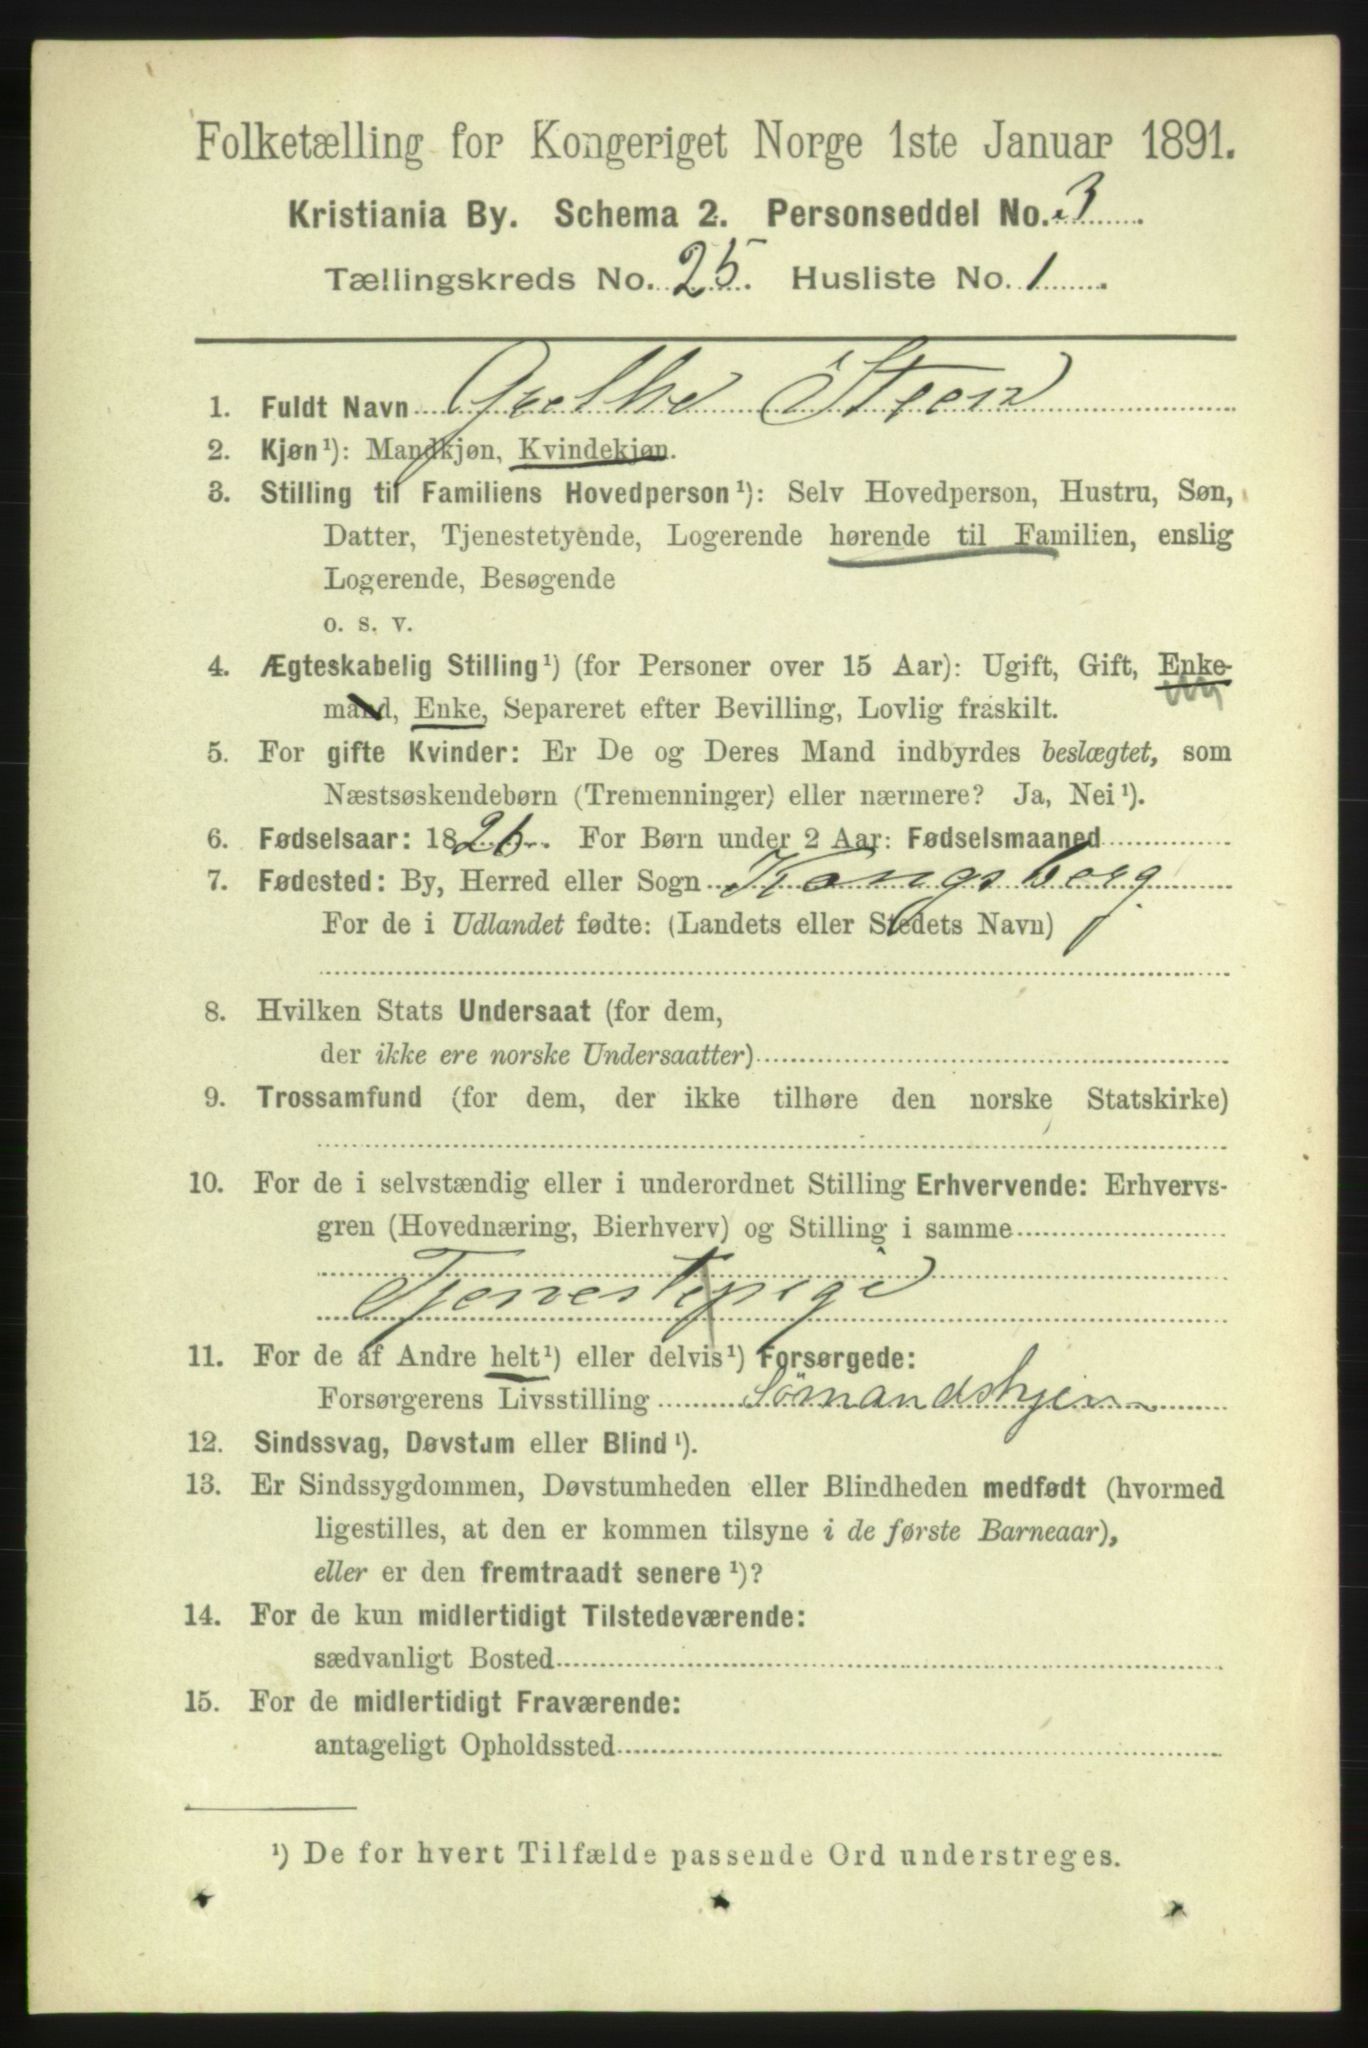 Folketælling for Kongeriget Norge 1ste Januar 1891.
Kristiania By. Schema 2. Personseddel No. 3
Tællingskreds No. 25. Husliste No. 1
1. Fuldt Navn Grethe Steen
2. Kjøn¹): Mandkjøn, Kvindekjøn.
3. Stilling til Familiens Hovedperson¹): Selv Hovedperson, Hustru, Søn,
Datter, Tjenestetyende, Logerende hørende til Familien, enslig
Logerende, Besøgende
o. s. v.
4. Ægteskabelig Stilling¹) (for Personer over 15 Aar): Ugift, Gift, Enke-
mand, Enke, Separeret efter Bevilling, Lovlig fraskilt.
5. For gifte Kvinder: Er De og Deres Mand indbyrdes beslægtet, som
Næstsøskendebørn (Tremenninger) eller nærmere? Ja, Nei¹).
6. Fødselsaar: 1826. For Børn under 2 Aar: Fødselsmaaned
7. Fødested: By, Herred eller Sogn Kongsberg
For de i Udlandet fødte: (Landets eller Stedets Navn)
8. Hvilken Stats Undersaat (for dem,
der ikke ere norske Undersaatter)
9. Trossamfund (for dem, der ikke tilhøre den norske Statskirke)
10. For de i selvstændig eller i underordnet Stilling Erhvervende: Erhvervs-
gren (Hovednæring, Bierhverv) og Stilling i samme
Tjenestepige
11. For de af Andre helt¹) eller delvis¹) Forsørgede:
Forsørgerens Livsstilling Sömandshjem
12. Sindssvag, Døvstum eller Blind¹).
13. Er Sindssygdommen, Døvstumheden eller Blindheden medfødt (hvormed
ligestilles, at den er kommen tilsyne i de første Barneaar),
eller er den fremtraadt senere¹)?
14. For de kun midlertidigt Tilstedeværende:
sædvanligt Bosted
15. For de midlertidigt Fraværende:
antageligt Opholdssted
¹) De for hvert Tilfælde passende Ord understreges.